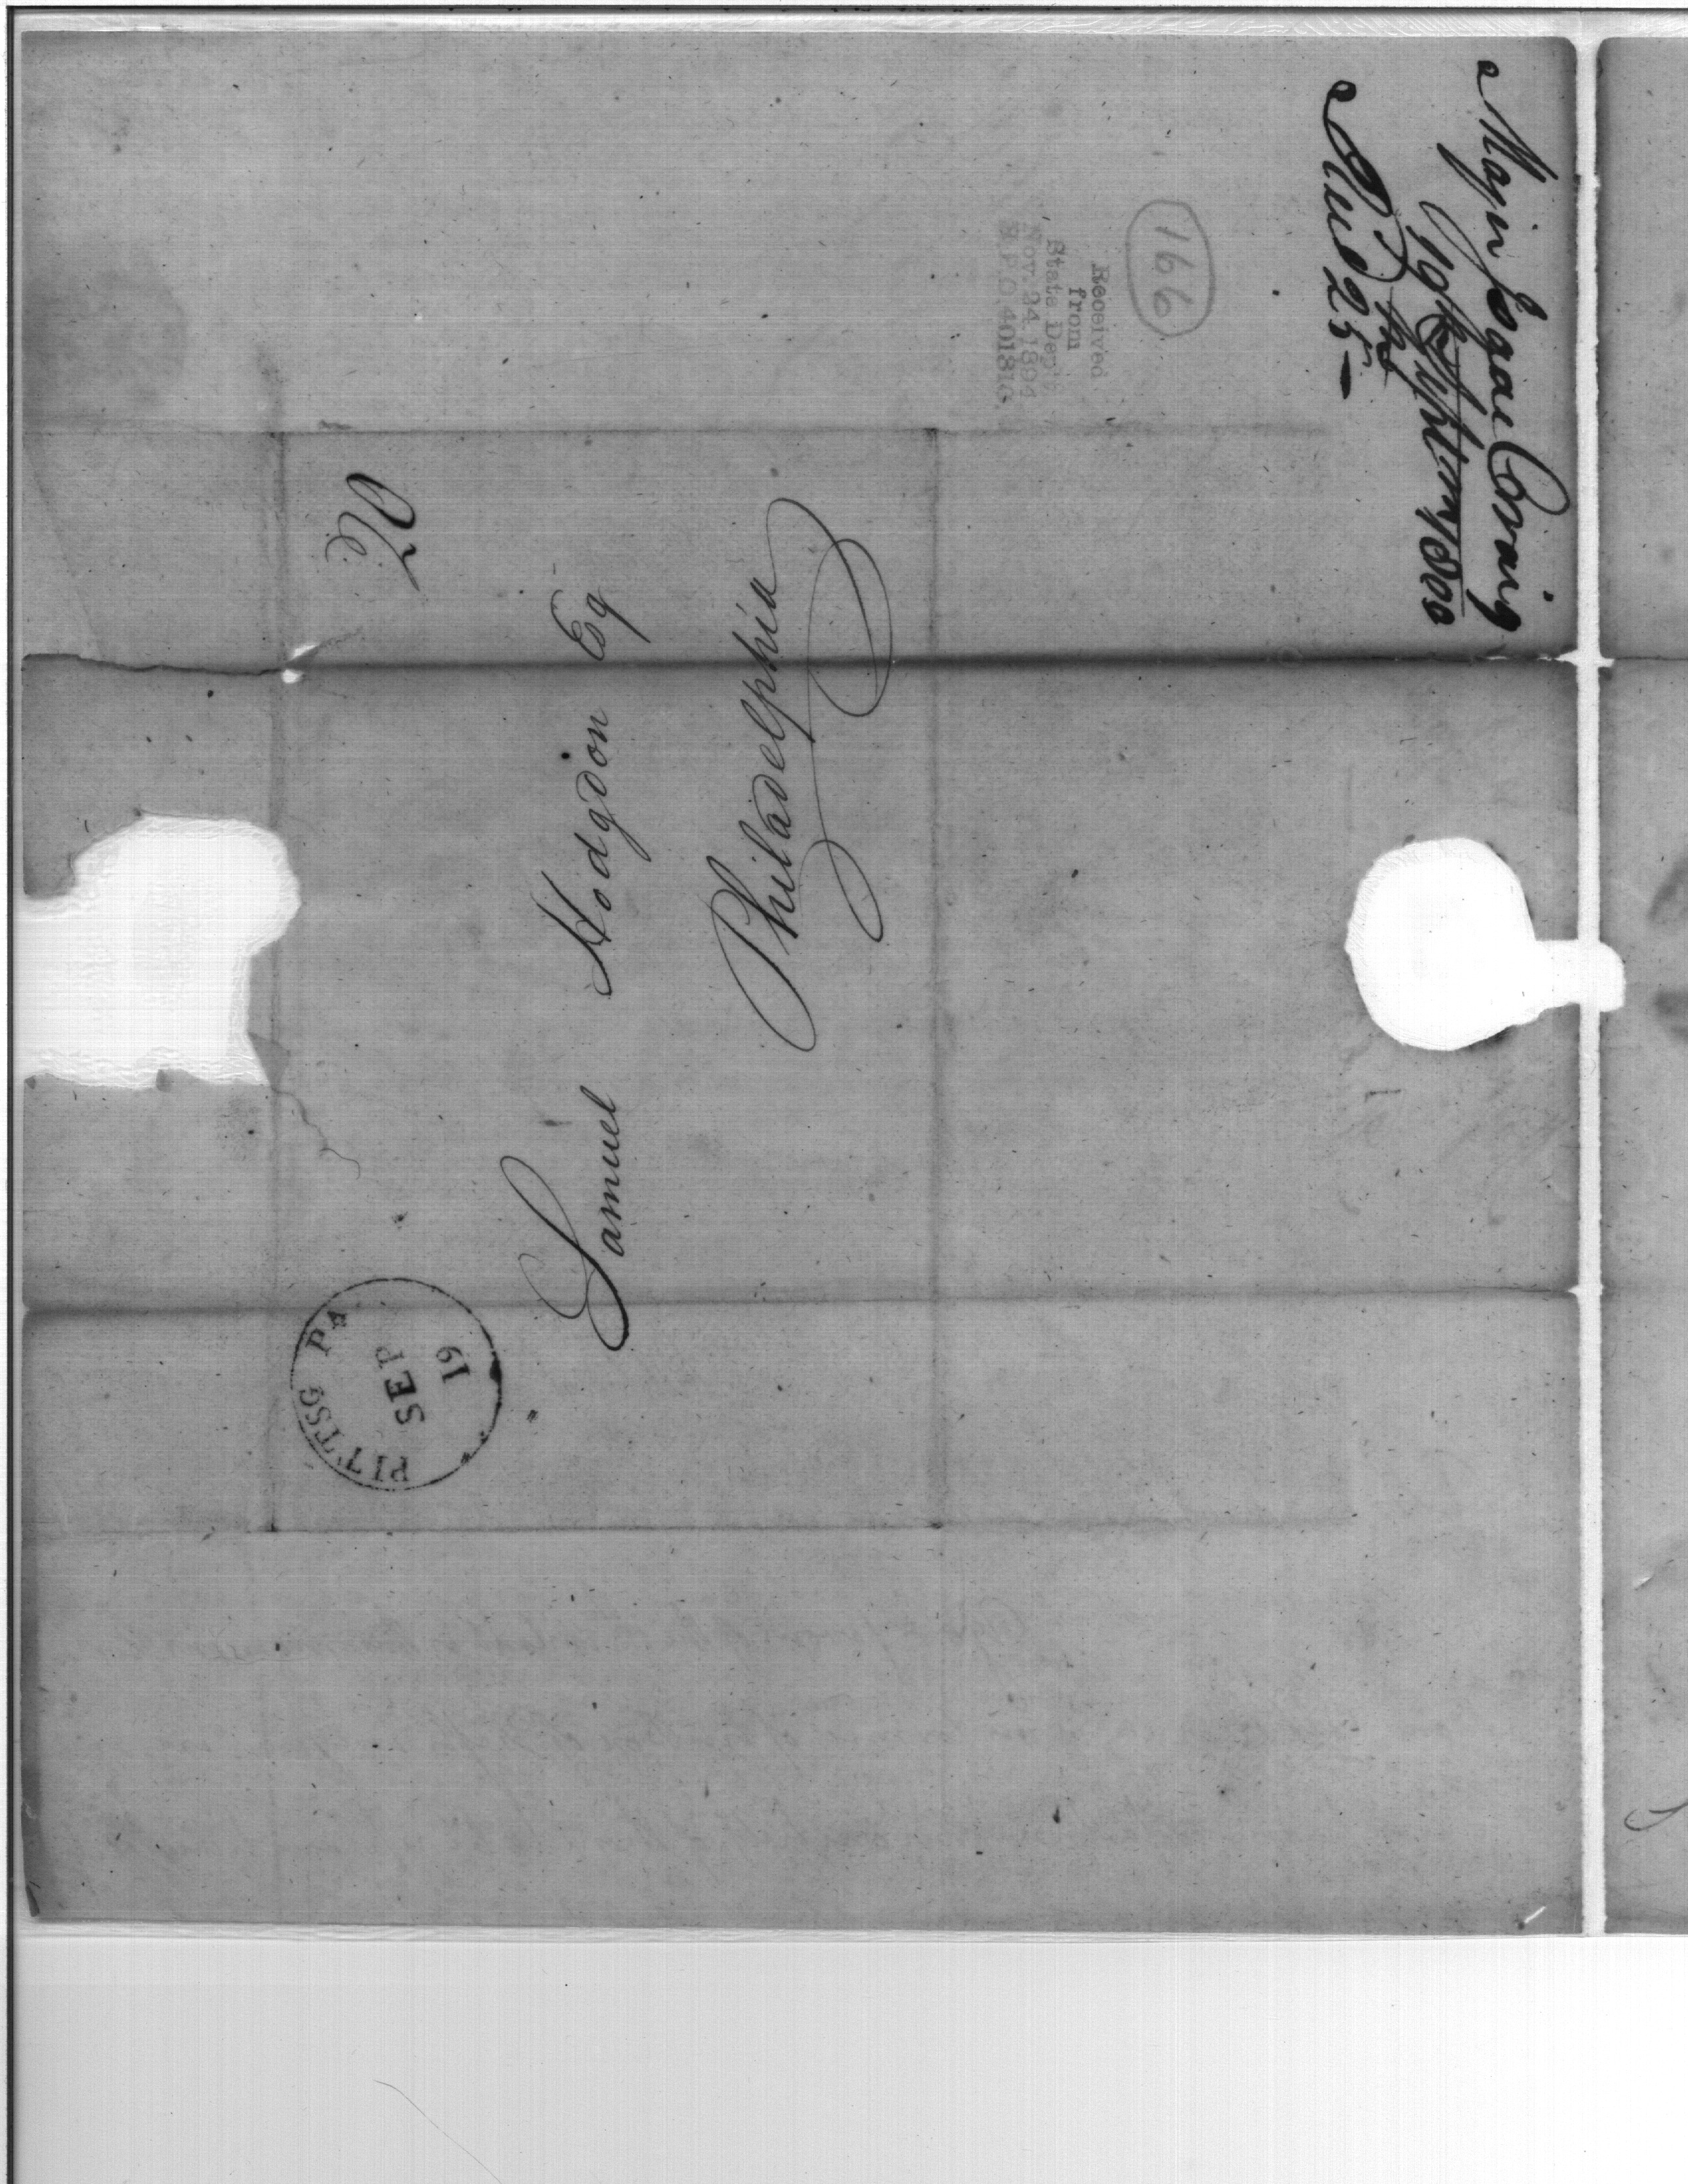 Major Isaac Craig
19th September 1800
Rec'd 25th –
166
Received
from
State Dep't
Nov. 24. 1894
R.P.O. 401816.
20
Samuel Hodgdon Esq
Philadelphia
PITTSG PA
SEP
19